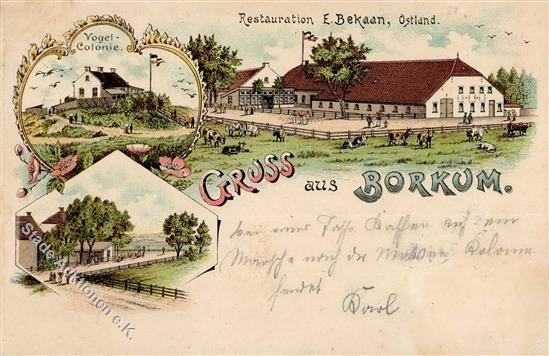 Restauration E. Bekaan, Ostland.
Vogel-
Colonie.
GRUSS aus BORKUM.
bei einer Tasse Kaffee auf dem
Marsche nach der Möwen Kolonie
sendet
Karl
Stade Auktionen e.K.